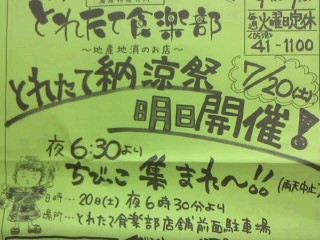 とれたて食楽部
～地産地消のお店～
毎週火曜日定休
41-1100
とれたて納涼祭
7/20(土)
明日開催!
夜6:30より
ちびっこ集まれ～!!(雨天中止)
日時…20日(土)夜6時30分より
場所…とれたて食楽部店舗前面駐車場